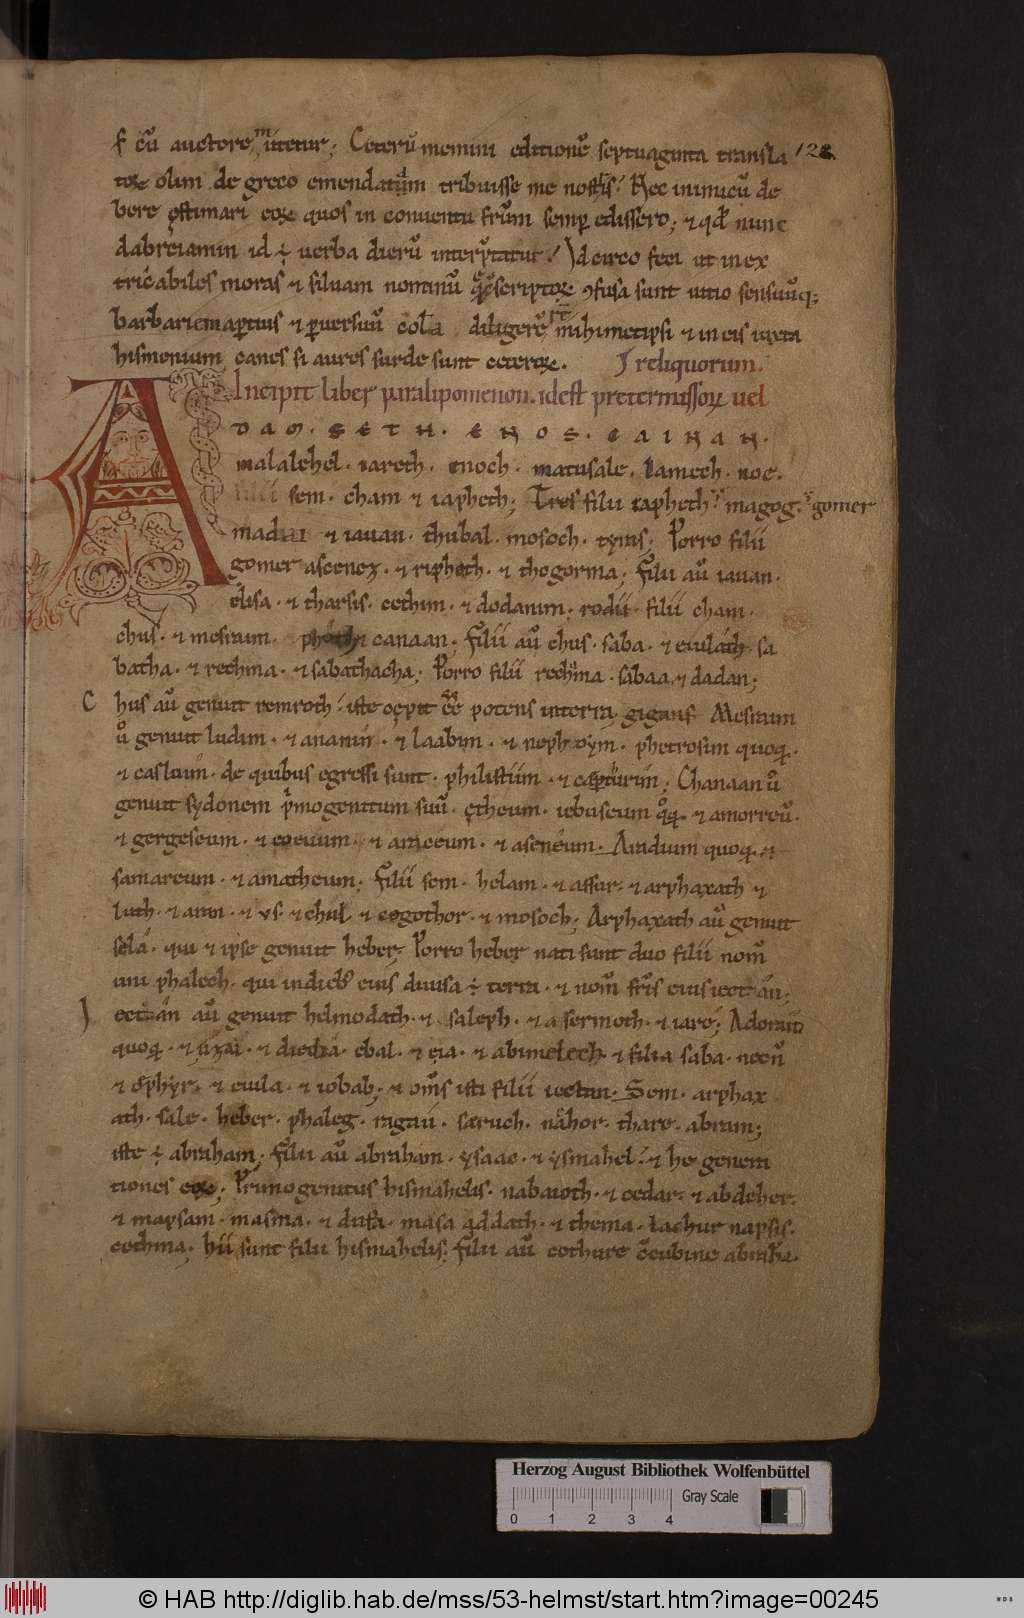 cū auctore utetur; Ceterū memini editionē septuaginta transla 128
toꝝ olim de greco emendatam tribuisse me nostris; Nec inimicū de
bere ęstimari eoꝝ quos in conuentu frūm semp edissero; ⁊ qd nunc
dabreiamin id ÷ uerba dierū interptatur; Idcirco feci ut inex
tricabiles moras ⁊ siluam nominū q̄ scriptoꝝ ꝯfusa sunt uitio sensuūq;
barbariem aptius ⁊ puersuū cola diligerē mihimetipsi ⁊ in eis iuxta
hismenium canes si aures surde sunt ceteroꝝ. reliquorum.
Incipit liber paralipomenon. idest pretermissoꝝ uel
A DAM. SETH. ENOS. CAINAN.
malalehel. iareth. enoch. matusale. Lamech. noe.
filii sem. cham ⁊ iapheth; Tres filii iapheth magog. gomer
madai ⁊ iauan. thubal. mosoch. tyras; Porro filii
gomer ascenez. ⁊ ripheth. ⁊ thogorma; filii aū iauan.
elisa. ⁊ tharsis. cethim. ⁊ dodanim. rodii filii cham.
chus. ⁊ mesraim. canaan; Filii aū chus. saba. ⁊ euilath. sa
batha. ⁊ rethma. ⁊ sabathacha; Porro filii rechma. sabaa ⁊ dadan;
Chus aū genuit nemroth; iste cępit ēē potens in terra gigans Mesraim
ů genuit ludim. ⁊ anamin. ⁊ laabim. ⁊ nepthoym. phetrosim quoq.
⁊ casluim. de quibus egressi sunt. philistiim. ⁊ capturim; Chanaan ů
genuit sydonem pmogenitum suū. ętheum. iebuseum qq. ⁊ amorreū.
⁊ gergeseum. ⁊ eoeuum. ⁊ araceum. ⁊ aseneum. Aradium quoq. ⁊
samareum. ⁊ amatheum; Filii sem. helam. ⁊ assur. ⁊ arphaxath ⁊
luth. ⁊ aran. ⁊ vs. ⁊ chul. ⁊ cogothor. ⁊ mosoch; Arphaxath aū genuit
sela. qui ⁊ ipse genuit heber; Porro heber nati sunt duo filii nom̄
uni phalech. qui in dieb; eius diuisa ÷ terra. ⁊ nom̄ fr̄is eius iectan;
Iectan aū genuit helmodath. ⁊ saleph. ⁊ asermoth. ⁊ iare; Adoram
quoq. ⁊ uzal. ⁊ diecla. ebal. ⁊ eia. ⁊ abimelech. ⁊ filia saba. necn̄
⁊ ophyr. ⁊ euila. ⁊ iobab; ⁊ om̄s isti filii iectan; Sem. arphax
ath. sale. heber. phaleg. ragau. saruch. nahor. thare. abram;
iste ÷ abraham; filii aū abraham. ysaac. ⁊ ysmahel; ⁊ he genera
tiones eoꝝ; Primogenitus hismahelis. nabaioth. ⁊ cedar. ⁊ abdeher.
⁊ mapsam. masma. ⁊ duma. masa addath. ⁊ thema. Iachur napsis.
cethma. hii sunt filii hismahelis; filii aū cethure c̄cubine abrahe.
Herzog August Bibliothek Wolfenbüttel
Gray Scale
0 1 2 3 4
© HAB http://diglib.hab.de/mss/53-helmst/start.htm?image=00245